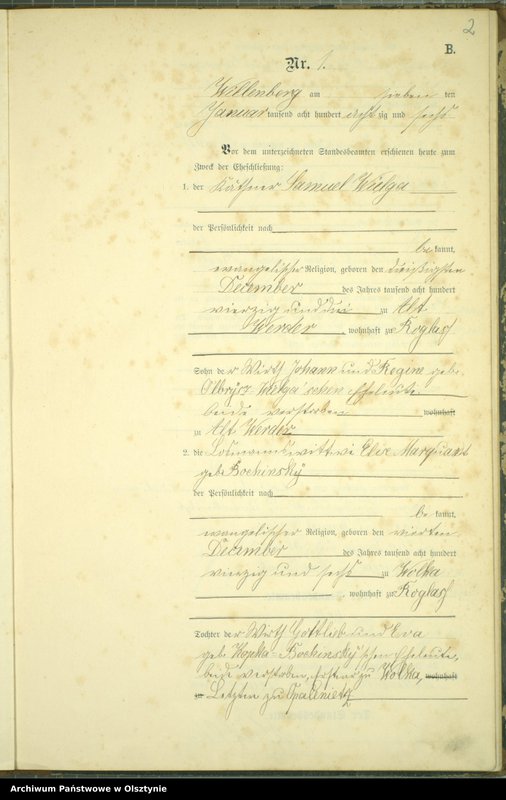 2
B.
Nr. 1.
Willenberg am sieben ten
Januar tausend acht hundert acht zig und sechs
Vor dem unterzeichneten Standesbeamten erschienen heute zum
Zweck der Eheschließung:
1. der Käthner Samuel Wielga
der Persönlichkeit nach
be kannt,
evangelischer Religion, geboren den dreißigsten
December des Jahres tausend acht hundert
vierzig und drei zu Alt
Werder, wohnhaft zu Röglas
Sohn der Wirth Johann und Regine geb.
Olbrysz-Wielga'schen Eheleute
beide verstorben wohnhaft
zu Alt Werder
2. die Losmannswittwe Elise Marquas
geb. Bochinsky
der Persönlichkeit nach
be kannt,
evangelischer Religion, geboren den vierten
December des Jahres tausend acht hundert
vierzig und sechs zu Wolka
, wohnhaft zu Röglas
Tochter der Wirth Gottlieb und Eva
geb. -Bochinsky'schen Eheleute,
beide verstorben, Ersterer zu Wolka, wohnhaft
zu Letztere zu Opalenietz
Archiwum Państwowe w Olsztynie